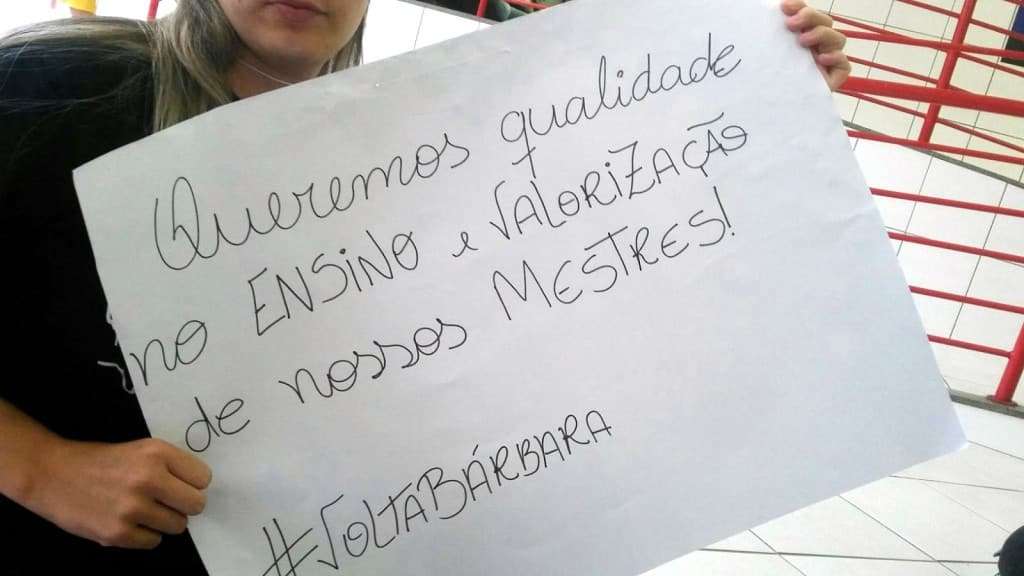 Queremos qualidade
no ENSINO e VALORIZAÇÃO
de nossos MESTRES!
#VOLTABÁRBARA